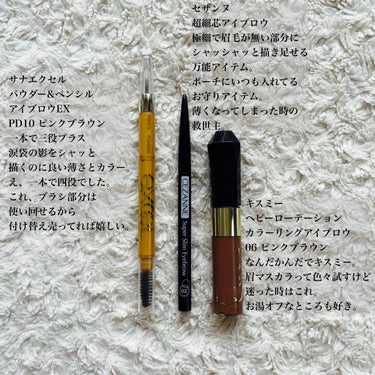 セザンヌ
超細芯アイブロウ
極細で眉毛が無い部分に
シャッシャッと描き足せる
万能アイテム。
ポーチにいつも入れてる
お守りアイテム。
薄くなってしまった時の
救世主。
サナエクセル
パウダー&ペンシル
アイブロウEX
PD10 ピンクブラウン
一本で三役プラス
涙袋の影をシャッと
描くのに良い薄さとカラー。
え、一本で四役でした。
これ、ブラシ部分は
使い回せるから
付け替え売ってれば嬉しい。
キスミー
ヘビーローテーション
カラーリングアイブロウ
06 ピンクブラウン
なんだかんだでキスミー。
眉マスカラって色々試すけど
迷った時はこれ。
お湯オフなところも好き。
CEZANNE
Super Slim Eyebrow
excel